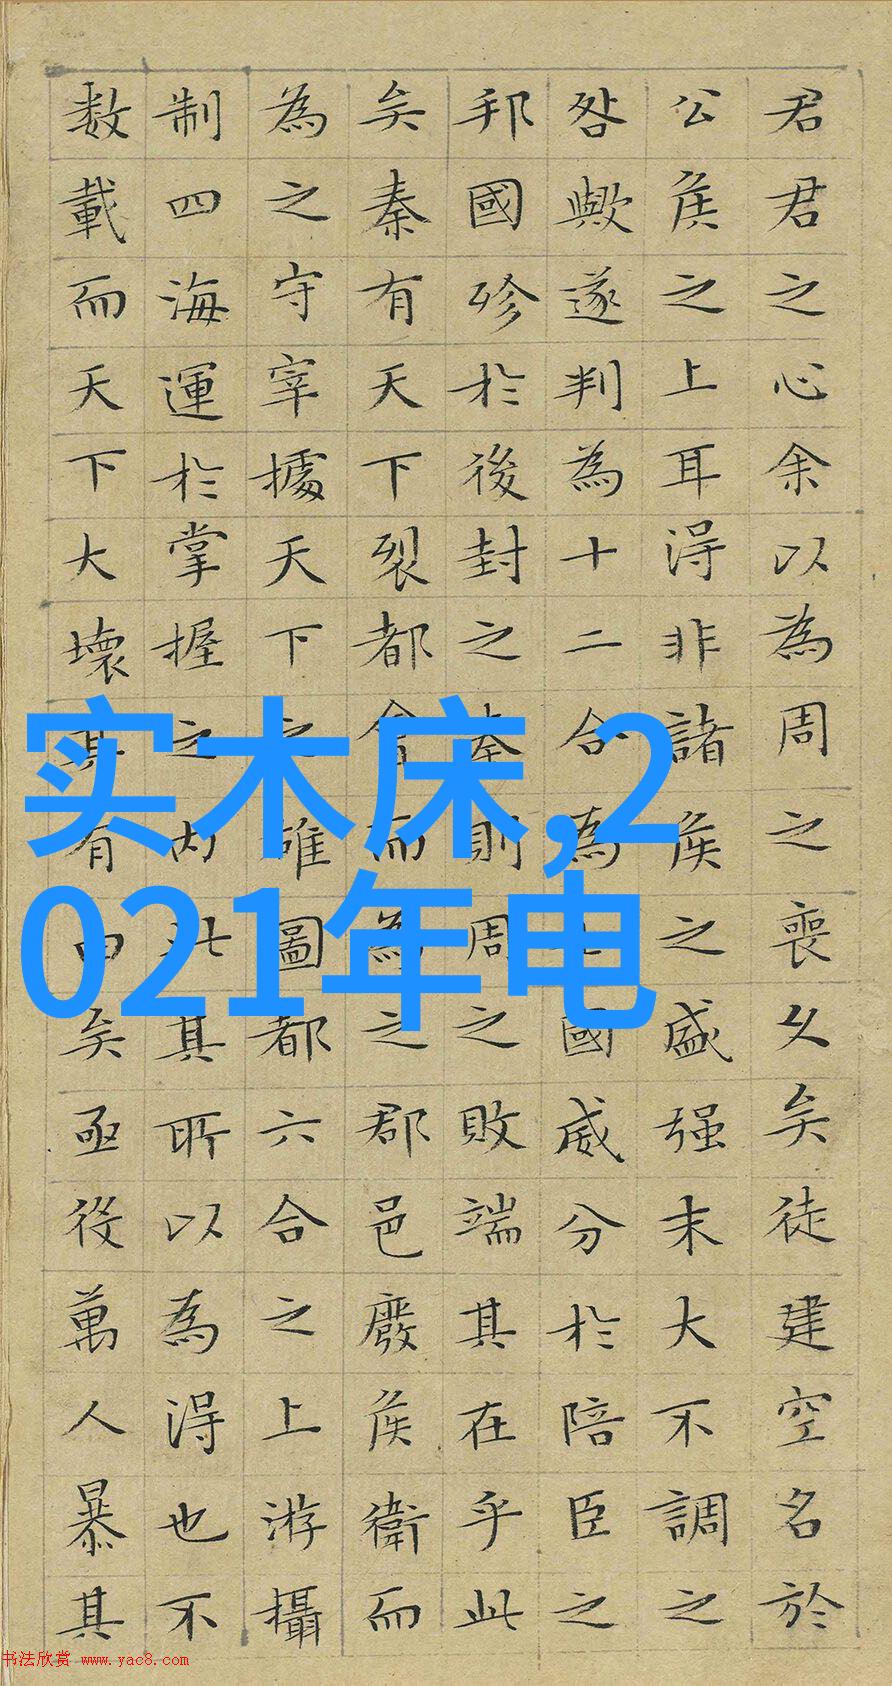 君君之心余以為周之喪久矣徒建空名於
公侯之上耳得非諸侯之盛强末大不調之
咎歟遂判為十二合為國威分於陪臣之
邦國殄於後封之秦則周之敗端其在乎此
矣秦有天下裂都會而為之郡邑廢侯衛而
為之守宰據天下之雄圖都六合之上游攝
制四海運於掌握之内此其所以為得也不
数載而天下大壞其有由矣亟役萬人暴其
实木床,2
021年电
书法欣赏 www.yac8.com